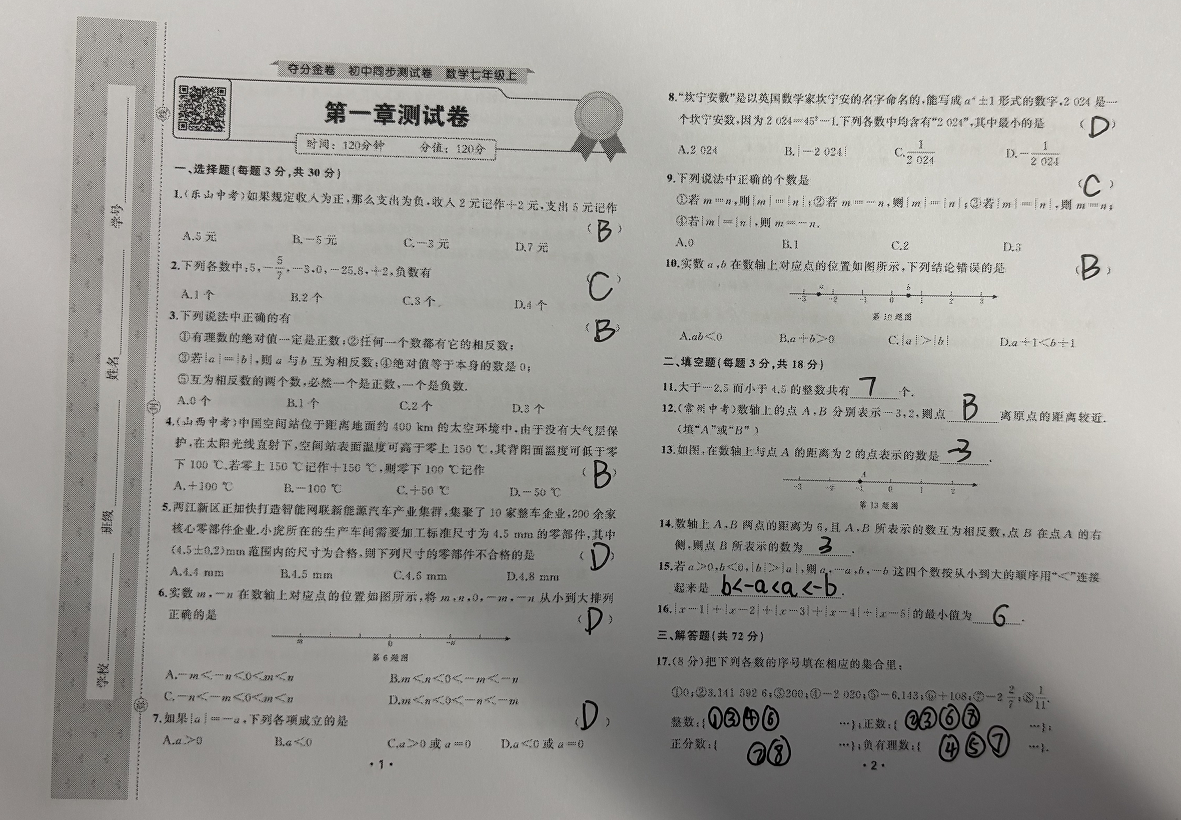 夺分金卷 初中同步测试卷 数学七年级上
第一章测试卷
时间：120分钟 分值：120分
一、选择题(每题3分,共30分)
1.(乐山中考)如果规定收入为正,那么支出为负,收入2元记作+2元,支出5元记作
(B)
A.5元 B.-5元 C.-3元 D.7元
2.下列各数中:5,-5/7,-3,0,-25.8,+2,负数有 (C)
A.1个 B.2个 C.3个 D.4个
3.下列说法中正确的有 (B)
①有理数的绝对值一定是正数;②任何一个数都有它的相反数;
③若|a|=|b|,则a与b互为相反数;④绝对值等于本身的数是0;
⑤互为相反数的两个数,必然一个是正数,一个是负数.
A.0个 B.1个 C.2个 D.3个
4.(山西中考)中国空间站位于距离地面约400 km的太空环境中.由于没有大气层保
护,在太阳光线直射下,空间站表面温度可高于零上150 ℃,其背阳面温度可低于零
下100 ℃.若零上150 ℃记作+150 ℃,则零下100 ℃记作 (B)
A.+100 ℃ B.-100 ℃ C.+50 ℃ D.-50 ℃
5.两江新区正加快打造智能网联新能源汽车产业集群,集聚了10家整车企业,200余家
核心零部件企业.小虎所在的生产车间需要加工标准尺寸为4.5 mm的零部件,其中
(4.5±0.2)mm范围内的尺寸为合格,则下列尺寸的零部件不合格的是 (D)
A.4.4 mm B.4.5 mm C.4.6 mm D.4.8 mm
6.实数m,-n在数轴上对应点的位置如图所示,将m,n,0,-m,-n从小到大排列
正确的是 (D)
m 0 -n
第6题图
A.-m<-n<0<m<n B.m<n<0<-m<-n
C.-n<-m<0<m<n D.m<n<0<-n<-m
7.如果|a|=-a,下列各项成立的是 (D)
A.a>0 B.a<0 C.a>0或a=0 D.a<0或a=0
·1·
学校 班级 姓名 学号
8."坎宁安数"是以英国数学家坎宁安的名字命名的,能写成aⁿ±1形式的数字,2 024是一
个坎宁安数,因为2 024=45²-1.下列各数中均含有"2 024",其中最小的是 (D)
A.2 024 B.|-2 024| C.1/2 024 D.-1/2 024
9.下列说法中正确的个数是 (C)
①若m=n,则|m|=|n|;②若m=-n,则|m|=|n|;③若|m|=|n|,则m=n;
④若|m|=|n|,则m=-n.
A.0 B.1 C.2 D.3
10.实数a,b在数轴上对应点的位置如图所示,下列结论错误的是 (B)
a b
-3 -2 -1 0 1 2 3
第10题图
A.ab<0 B.a+b>0 C.|a|>|b| D.a+1<b+1
二、填空题(每题3分,共18分)
11.大于-2.5而小于4.5的整数共有 7 个.
12.(常州中考)数轴上的点A,B分别表示-3,2,则点 B 离原点的距离较近.
(填"A"或"B")
13.如图,在数轴上与点A的距离为2的点表示的数是 -3 .
A
-3 -2 -1 0 1 2
第13题图
14.数轴上A,B两点的距离为6,且A,B所表示的数互为相反数,点B在点A的右
侧,则点B所表示的数为 3 .
15.若a>0,b<0,|b|>|a|,则a,-a,b,-b这四个数按从小到大的顺序用"<"连接
起来是 b<-a<a<-b .
16.|x-1|+|x-2|+|x-3|+|x-4|+|x-5|的最小值为 6 .
三、解答题(共72分)
17.(8分)把下列各数的序号填在相应的集合里:
①0;②3.141 592 6;③200;④-2 020;⑤-6.143;⑥+108;⑦-2 2/7;⑧1/11.
整数:{①③④⑥ …};正数:{②③⑥⑧ …};
正分数:{②⑧ …};负有理数:{④⑤⑦ …}.
·2·